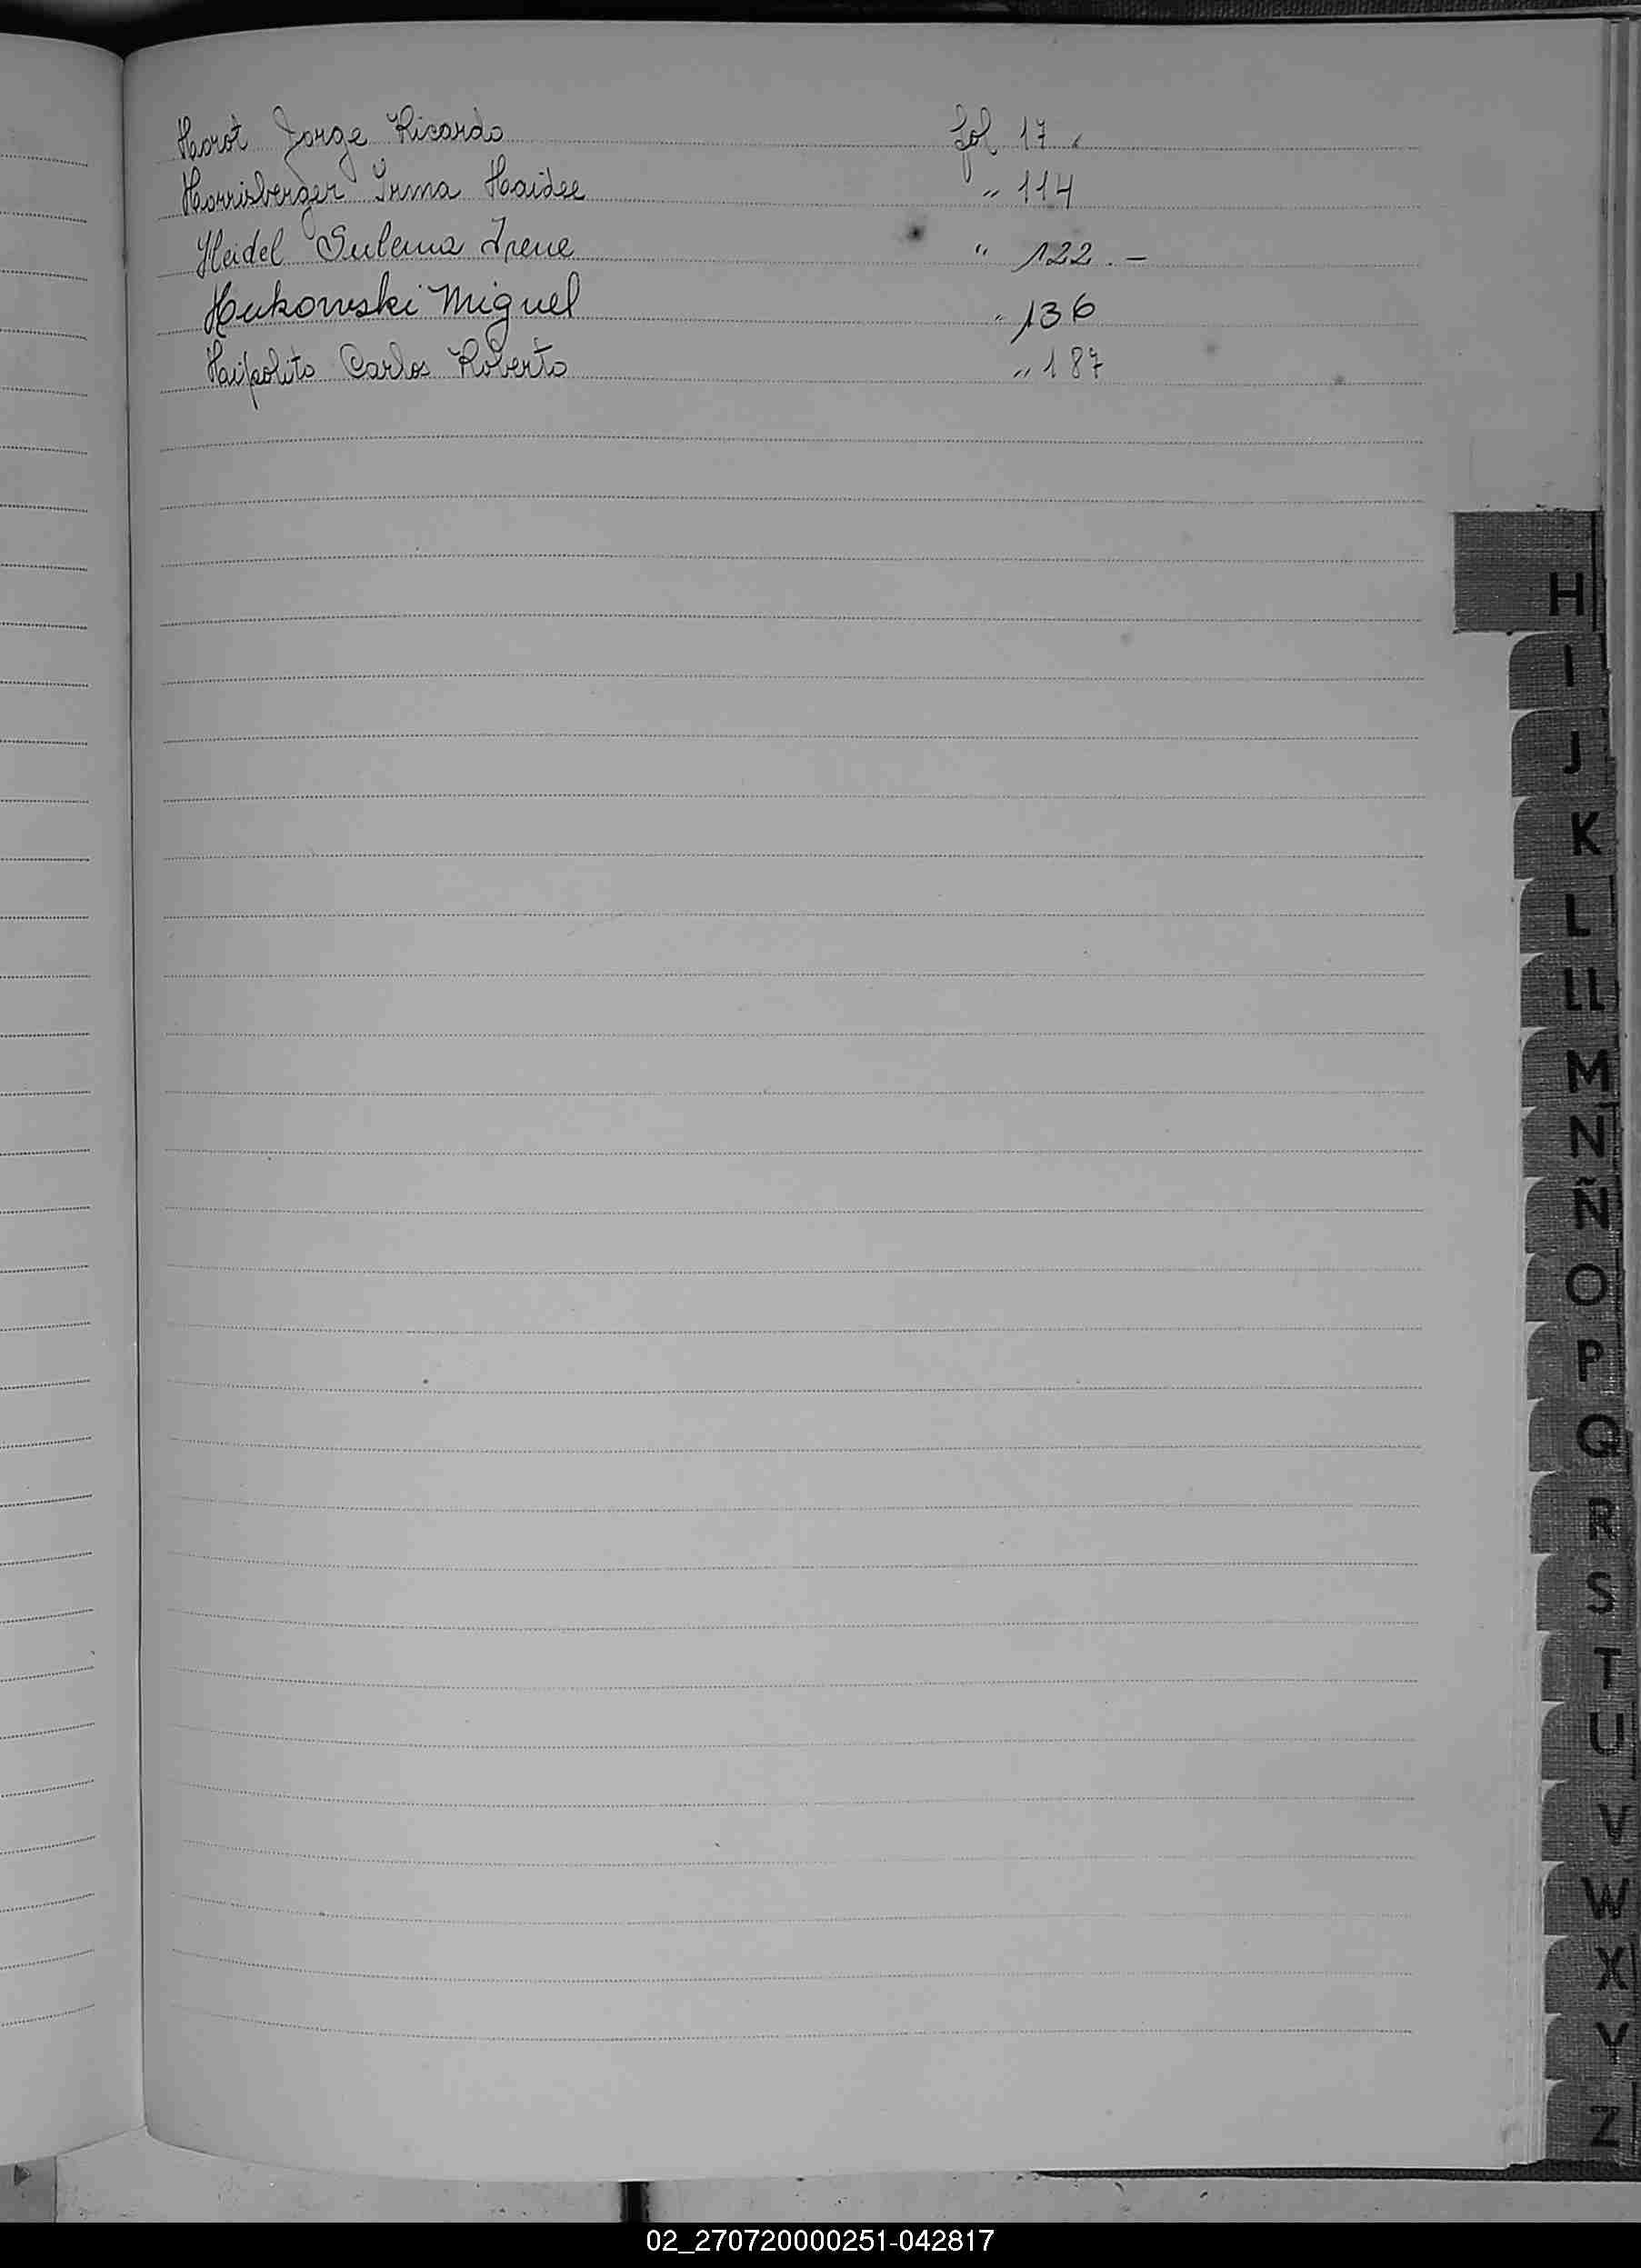 Horot Jorge Ricardo fol 17.
Harrisberger Irma Haidee " 114
Heidel Sulema Irene " 122. —
Hukowski Miguel " 136
Haipolito Carlos Roberto " 187
H
I
J
K
L
LL
M
N
Ñ
O
P
Q
R
S
T
U
V
W
X
Y
Z
02_270720000251-042817